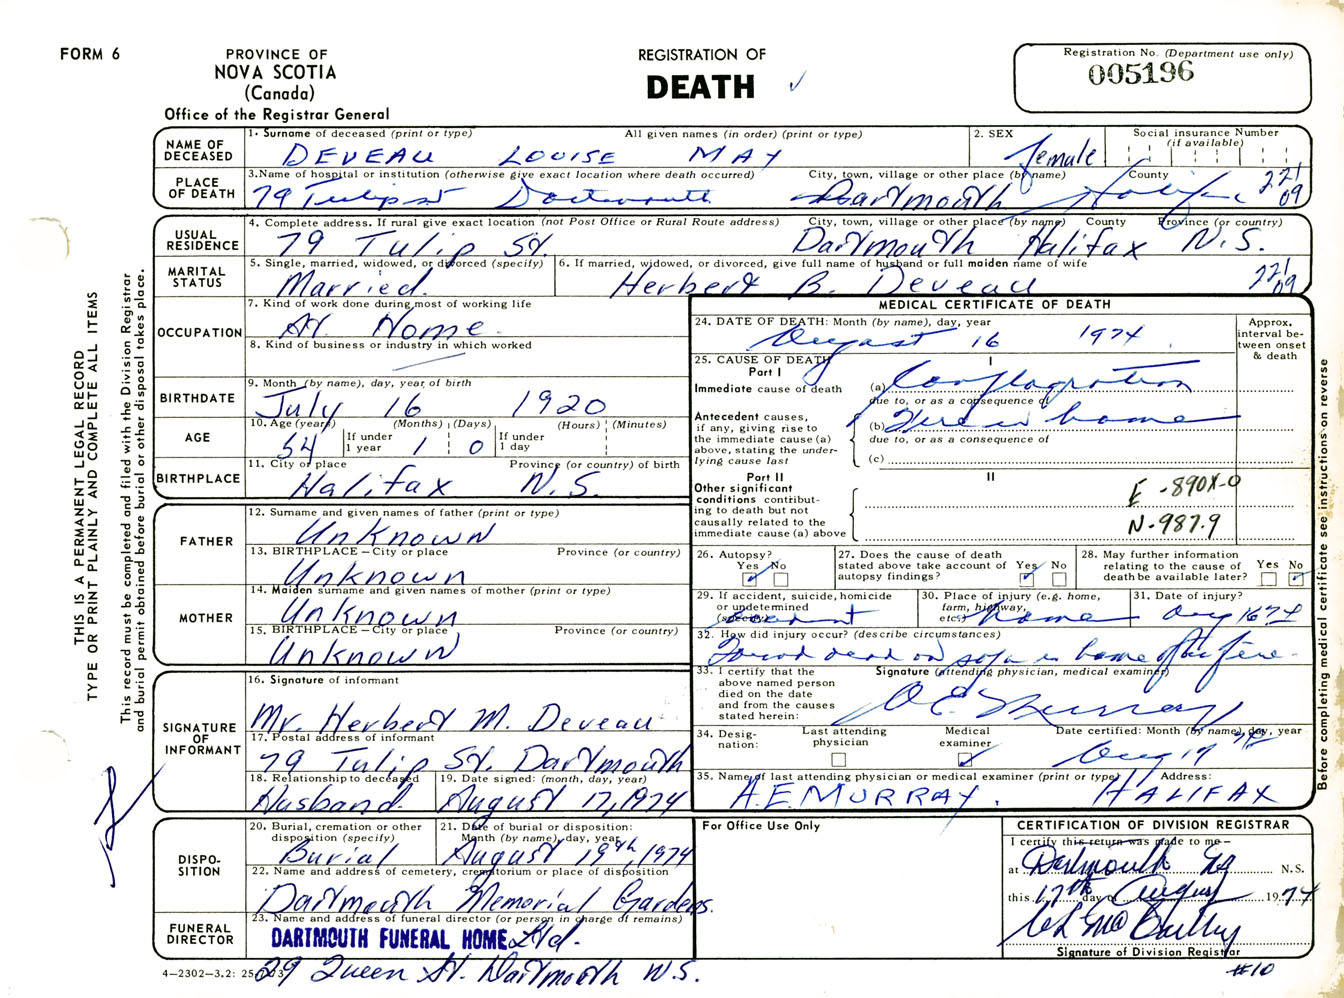 FORM 6
PROVINCE OF
NOVA SCOTIA
(Canada)
Office of the Registrar General
REGISTRATION OF
DEATH
Registration No. (Department use only)
005196
THIS IS A PERMANENT LEGAL RECORD
TYPE OR PRINT PLAINLY AND COMPLETE ALL ITEMS
This record must be completed and filed with the Division Registrar
and burial permit obtained before burial or other disposal takes place.
NAME OF DECEASED
1. Surname of deceased (print or type) All given names (in order) (print or type)
DEVEAU LOUISE MAY
2. SEX
female
Social insurance Number
(if available)
PLACE OF DEATH
3. Name of hospital or institution (otherwise give exact location where death occurred) City, town, village or other place (by name) County
79 Tulip St Dartmouth Dartmouth Halifax 221
09
USUAL RESIDENCE
4. Complete address. If rural give exact location (not Post Office or Rural Route address) City, town, village or other place (by name) County Province (or country)
79 Tulip St. Dartmouth Halifax N.S.
MARITAL STATUS
5. Single, married, widowed, or divorced (specify)
Married.
6. If married, widowed, or divorced, give full name of husband or full maiden name of wife
Herbert B. Deveau
221
09
OCCUPATION
7. Kind of work done during most of working life
At Home.
8. Kind of business or industry in which worked
BIRTHDATE
9. Month (by name), day, year of birth
July 16 1920
AGE
10. Age (years) (Months) (Days) (Hours) (Minutes)
54 If under 1 year 1 0 If under 1 day
BIRTHPLACE
11. City or place Province (or country) of birth
Halifax N.S.
FATHER
12. Surname and given names of father (print or type)
Unknown
13. BIRTHPLACE – City or place Province (or country)
Unknown
MOTHER
14. Maiden surname and given names of mother (print or type)
Unknown
15. BIRTHPLACE – City or place Province (or country)
Unknown
SIGNATURE OF INFORMANT
16. Signature of informant
Mr. Herbert M. Deveau
17. Postal address of informant
79 Tulip St. Dartmouth
18. Relationship to deceased
Husband.
19. Date signed: (month, day, year)
August 17, 1974
DISPO-
SITION
20. Burial, cremation or other disposition (specify)
Burial
21. Date of burial or disposition: Month (by name), day, year
August 19th, 1974
22. Name and address of cemetery, crematorium or place of disposition
Dartmouth Memorial Gardens.
FUNERAL DIRECTOR
23. Name and address of funeral director (or person in charge of remains)
DARTMOUTH FUNERAL HOME Ltd.
29 Queen St. Dartmouth N.S.
4-2302-3.2: 25
MEDICAL CERTIFICATE OF DEATH
24. DATE OF DEATH: Month (by name), day, year
August 16 1974.
Approx. interval be-
tween onset & death
25. CAUSE OF DEATH
Part I
I
Immediate cause of death
(a) Conflagration
due to, or as a consequence of
Antecedent causes,
if any, giving rise to
the immediate cause (a)
above, stating the under-
lying cause last
(b) Fire in home
due to, or as a consequence of
(c)
Part II
II
Other significant
conditions contribut-
ing to death but not
causally related to the
immediate cause (a) above
E-890X-0
N-987.9
26. Autopsy?
Yes No
27. Does the cause of death stated above take account of autopsy findings?
Yes No
28. May further information relating to the cause of death be available later?
Yes No
29. If accident, suicide, homicide or undetermined (specify)
accident
30. Place of injury (e.g. home, farm, highway, etc.)
home
31. Date of injury?
Aug 16 74
32. How did injury occur? (describe circumstances)
Found dead on sofa in home after fire.
33. I certify that the
above named person
died on the date
and from the causes
stated herein:
Signature (attending physician, medical examiner)
A E Murray
34. Desig-
nation:
Last attending physician
Medical examiner
Date certified: Month (by name), day, year
Aug 17 74
35. Name of last attending physician or medical examiner (print or type) Address:
A.E. MURRAY. HALIFAX
Before completing medical certificate see instructions on reverse
For Office Use Only
CERTIFICATION OF DIVISION REGISTRAR
I certify this return was made to me –
at Dartmouth NS N.S.
this 17th day of August 1974
Signature of Division Registrar
#10